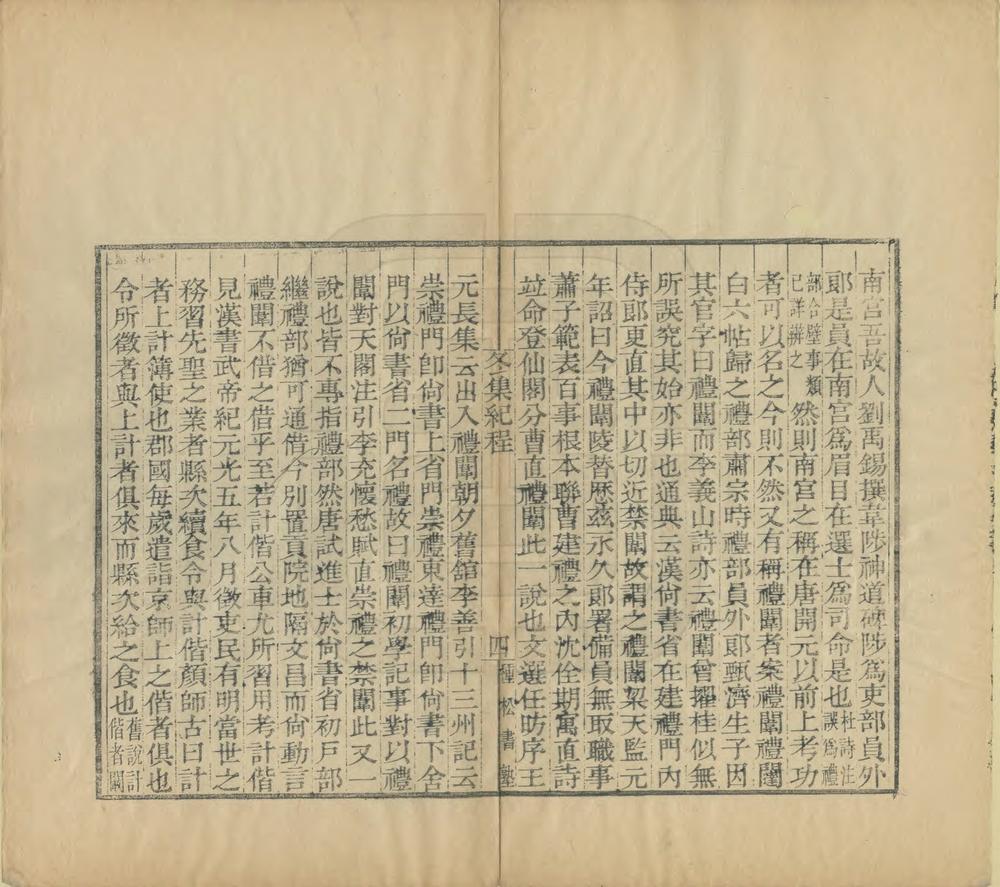 南宮吾故人劉禹錫撰韋陟神道碑陟爲吏部員外
郎是員在南宮爲眉目在選士爲司命是也杜詩注誤爲禮
部合璧事類已詳辨之然則南宮之稱在唐開元以前上考功
者可以名之今則不然又有稱禮闈者案禮闈禮闥
白六帖歸之禮部肅宗時禮部員外郎甄濟生子因
其官字曰禮闈而李義山詩亦云禮闈曾擢桂似無
所誤究其始亦非也通典云漢尙書省在建禮門內
侍郎更直其中以切近禁闈故謂之禮闈梁天監元
年詔曰今禮闈陵替歷茲永久郎署備員無取職事
蕭子範表百事根本聯曹建禮之內沈佺期寓直詩
竝命登仙閣分曹直禮闈此一說也文選任昉序王
冬集紀程
四
種松書塾
元長集云出入禮闈朝夕舊館李善引十三州記云
崇禮門卽尙書上省門崇禮東達禮門卽尙書下舍
門以尙書省二門名禮故曰禮闈初學記事對以禮
闈對天閣注引李充懷愁賦直崇禮之禁闈此又一
說也皆不專指禮部然唐試進士於尙書省初戸部
繼禮部猶可通借今別置貢院地隔文昌而尙動言
禮闈不借之借乎至若計偕公車尤所習用考計偕
見漢書武帝紀元光五年八月徵吏民有明當世之
務習先聖之業者縣次續食令與計偕顏師古曰計
者上計簿使也郡國每歲遣詣京師上之偕者俱也
令所徵者與上計者俱來而縣次給之食也舊說計偕者闞